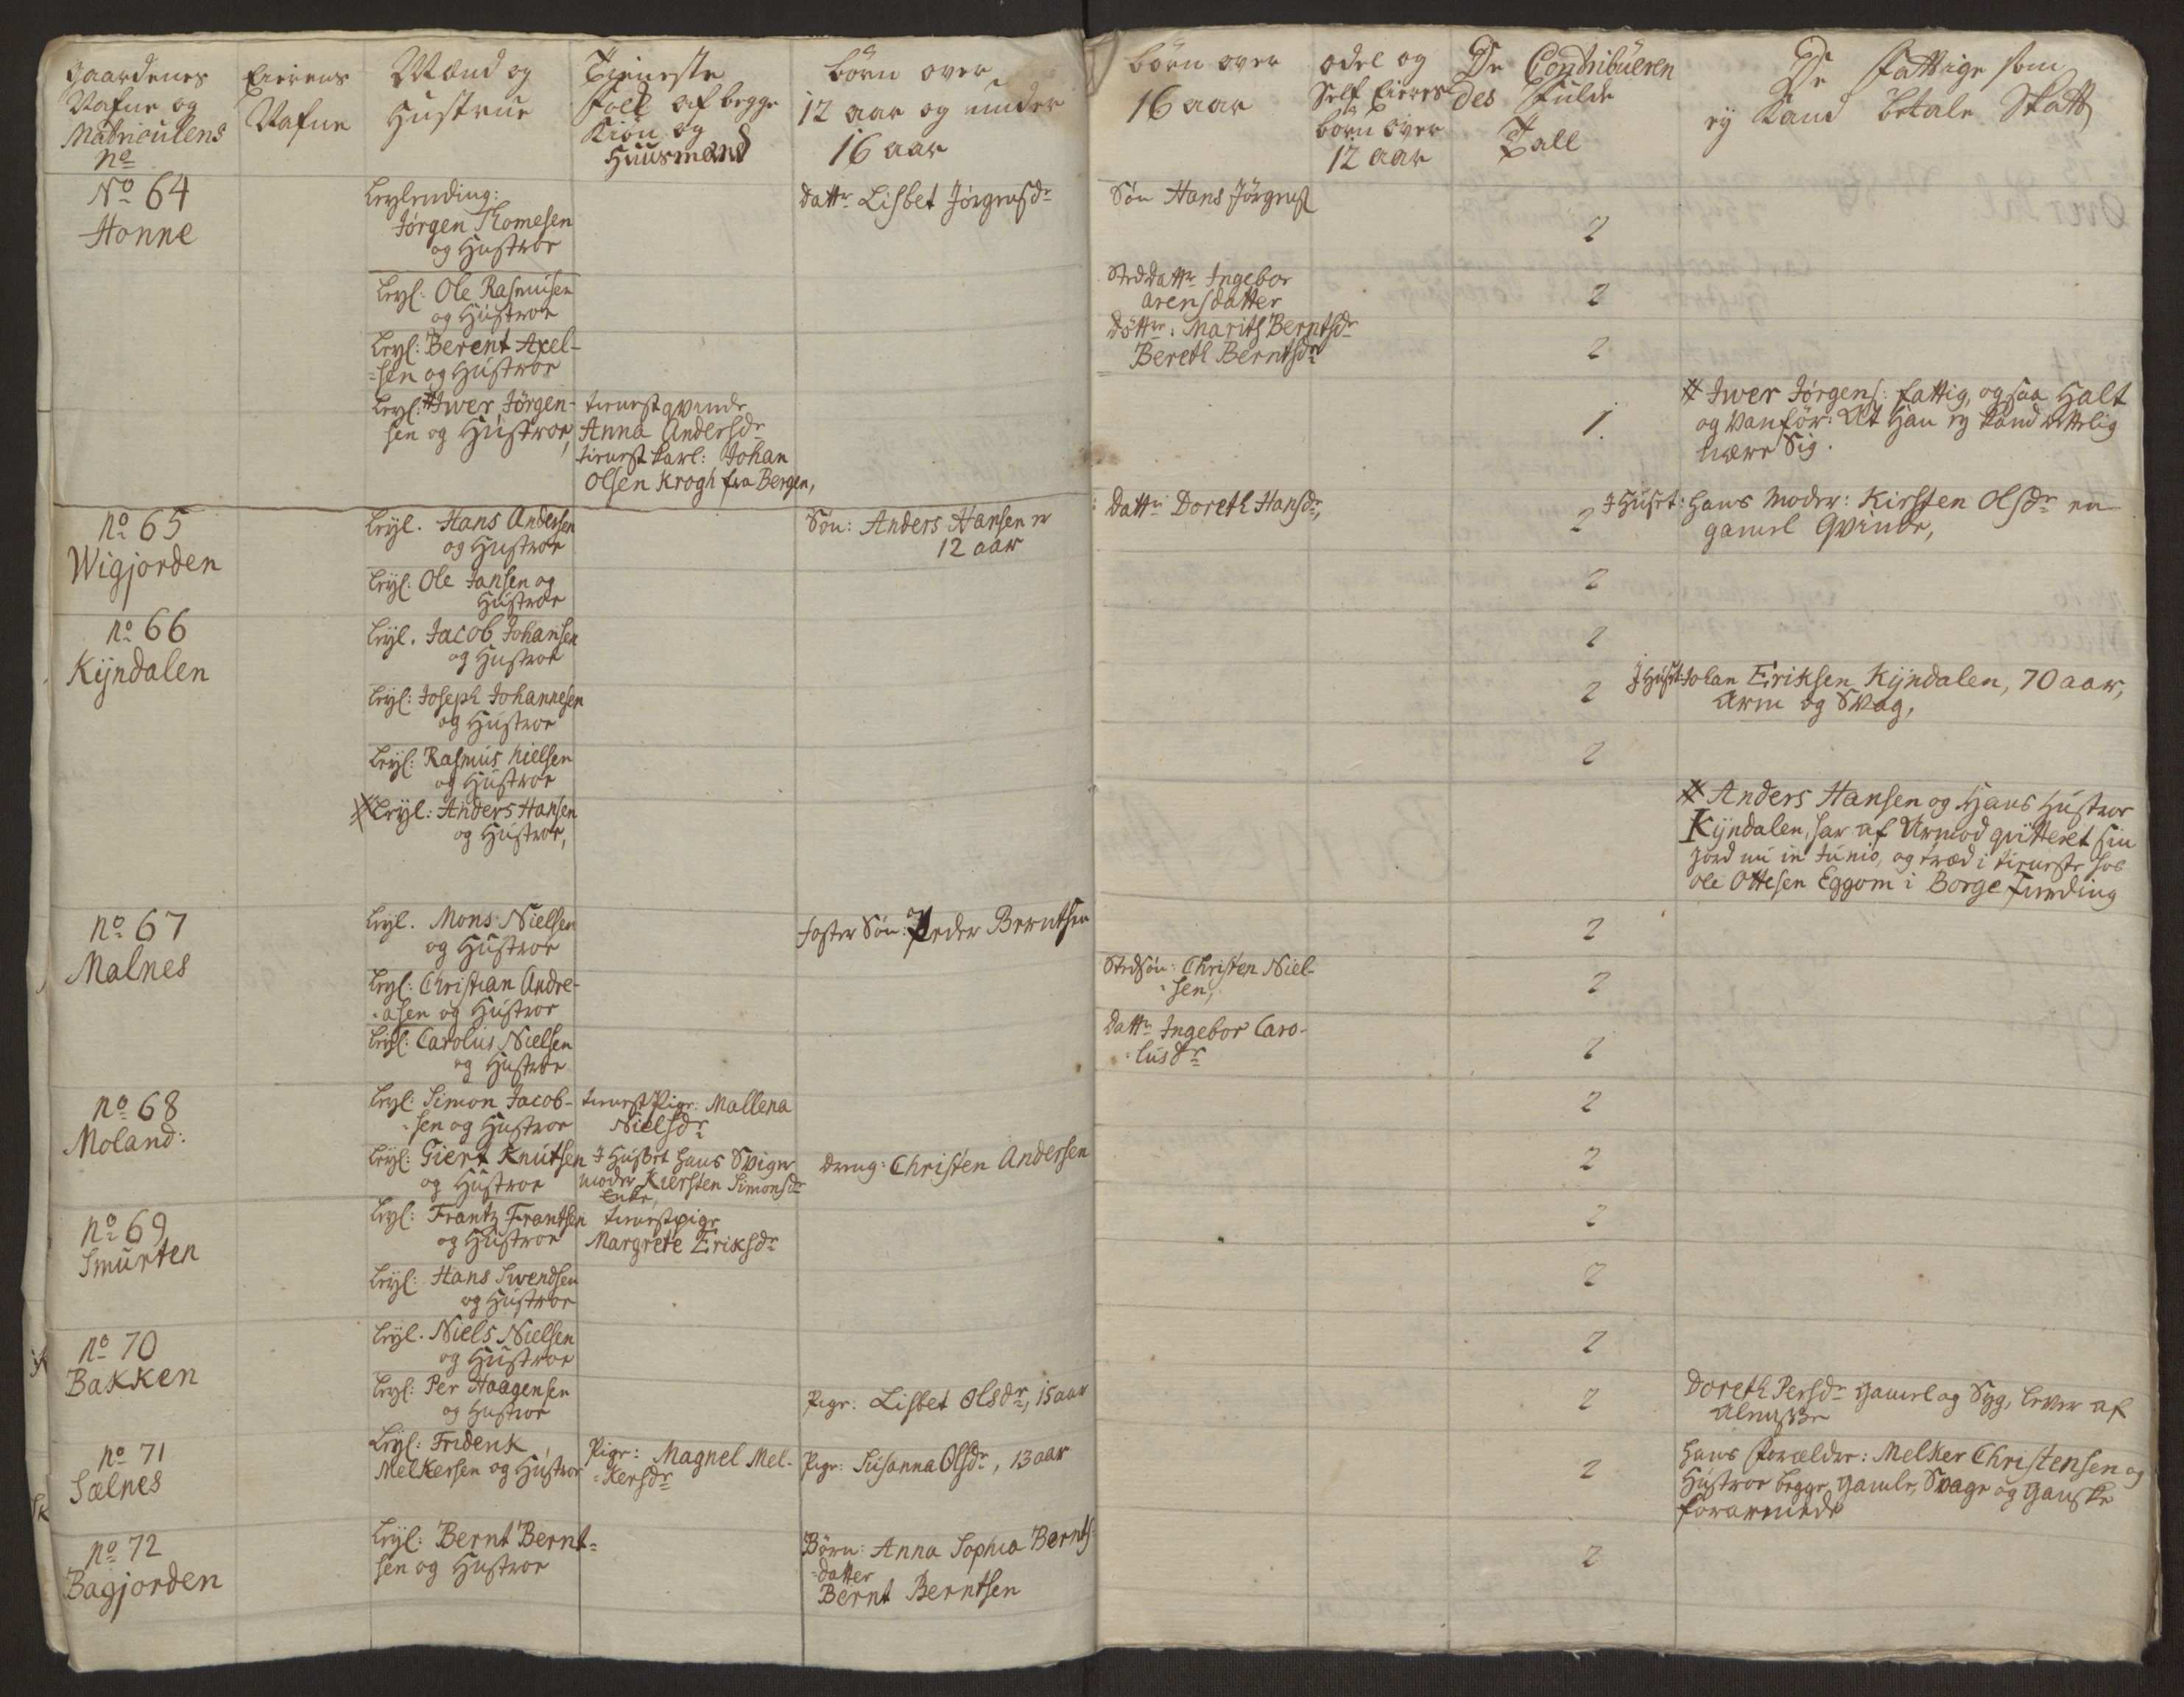 Gaardenes
Nafne og
Matriculens
No
Eierens
Nafne
Mænd og
Hustrue
Tieneste
Folk af begge
Kiøn og
Huusmænd
Børn over
12 aar og under
16 aar
Børn over
16 aar
Odel og
Self Eieres
børn over
12 aar
De Contribueren
des Fulde
Tall
De Fattige som
ey kand betale Skatt
No 64
Honne
Leylending:
Jørgen Thomesen
og Hustroe
Dattr Lisbet Jørgensdr
Søn Hans Jørgens
2
Leyl: Ole Rasmusen
og Hustroe
Sted Dattr Ingebor
Arensdatter
2
Leyl: Berent Axel-
=sen og Hustroe
Døttr: Marith Berntsdr
Bereth Berntsdr
2
Leyl: # Iwer Jørgen-
sen og Hustroe,
tienestqvinde
Anna Andersdr
tienest karl: Johan
Olsen Krogh fra Bergen,
1.
# Iwer Jørgens: fattig, ogsaa Halt
og Vanfør: At Han ej kand ættelig
nære Sig.
No 65
Wigjorden
Leyl. Hans Andersen
og Hustroe
Søn: Anders Hansen er
12 aar
Dattr Doreth Hansdr,
2
J Huset: Hans Moder: Kirsten Olsdr en
gamel Qvinde,
Leyl: Ole Jansen og
Hustroe
2
No 66
Kÿndalen
Leyl. Jacob Johansen
og Hustroe
2
Leyl: Joseph Johannesen
og Hustroe
2
J Huset: Johan Eriksen Kÿndalen, 70 aar,
Arm og Svag,
Leyl: Rasmus Nielsen
og Hustroe
2
# Leyl: Anders Hansen
og Hustroe,
# Anders Hansen og Hans Hustroe
Kÿndalen, har af Armod qvitteret sin
Jord nu in Junio, og træd i tieneste hos
Ole Ottesen Eggom i Borge Finding
No 67
Malnes
Leyl. Mons Nielsen
og Hustroe
Foster Søn: Peder Berntsen
2
Leyl: Christian Andre-
=asen og Hustroe
Stedsøn: Christen Niel-
=sen,
2
Leyl: Carolus Nielsen
og Hustroe
Dattr Ingebor Caro-
=lusdr
2
No 68
Moland:
Leyl: Simon Jacob-
=sen og Hustroe
tienestPige: Mallena
Nielsdr
2
Leyl: Giert Knutsen
og Hustroe
J Huset hans Sviger
moder Kiersten Simonsdr
Enke,
Dreng: Christen Andersen
2
No 69
Smurten
Leyl: Frantz Frantsen
og Hustroe
tienestpige
Margrete Eriksdr
2
Leyl: Hans Swendsen
og Hustroe
2
No 70
Bakken
Leyl. Niels Nielsen
og Hustroe
2
Leyl: Per Haagensen
og Hustroe
Pige: Lisbet Olsdr, 15 aar
2
Doreth Persdr gamel og Syg, lever af
Almisse
No 71
Sælnes
Leyl: Fridenk
Melkersen og Hustroe
Pige: Magnel Mel-
=kersdr
Pige: Susanna Olsdr, 13 aar
2
Hans Forældre: Melker Christensen og
Hustroe begge gamle, Svage og Ganske
forarmede
No 72
Bagjorden
Leyl: Bernt Bernt=
sen og Hustroe
Børn: Anna Sophia Bernts=
=datter
Bernt Berntsen
2